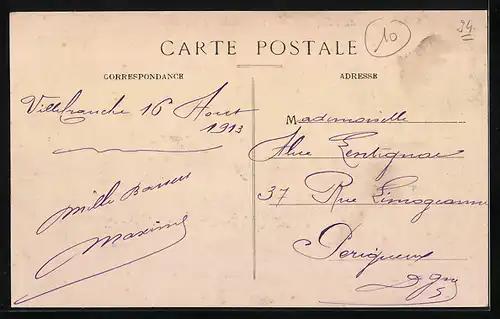 CARTE POSTALE
CORRESPONDANCE
ADRESSE
10
34
Villefranche 16 Aout
1913
Mille Baisers
Maxime
Mademoiselle
37 Rue Limogeanne
Périgueux